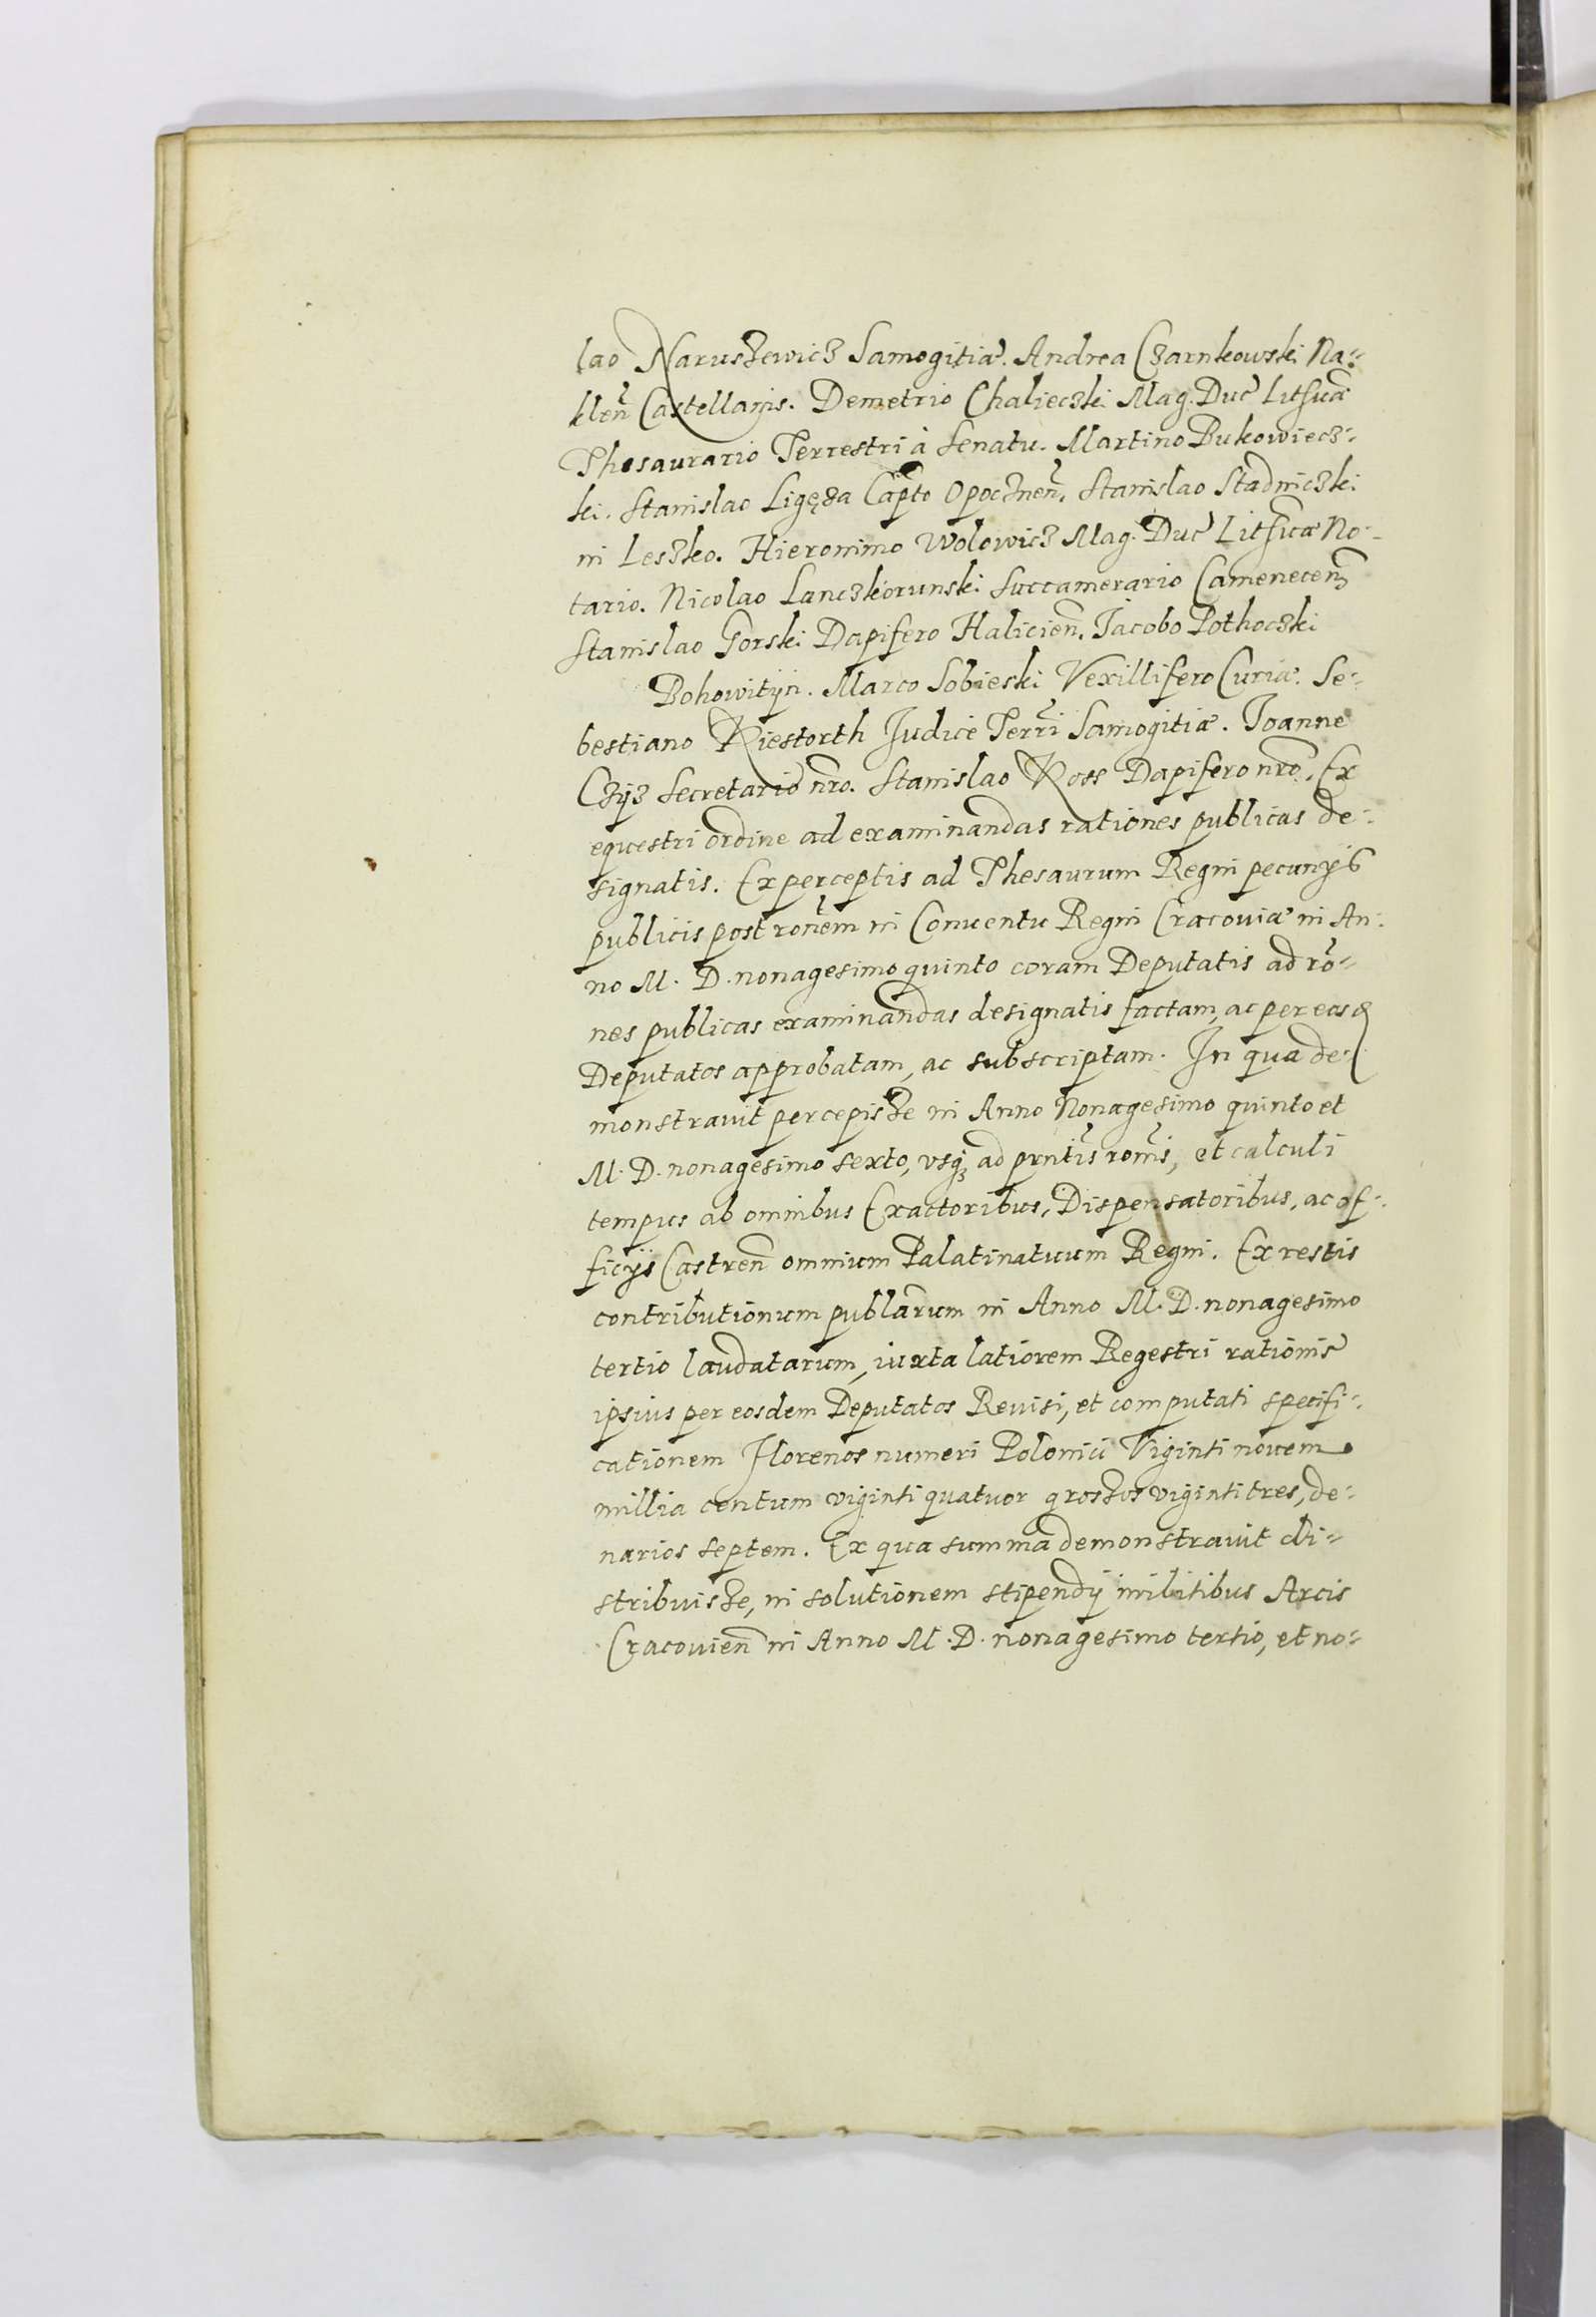 lao Naruszewicz Samogitiæ. Andrea Czarnkowski Na=
klen̄ Castellanis. Demetrio Chalieczki Mag. Duc̄ Lithuæ
Thesaurario Terrestri à Senatu. Martino Bukowiecz=
ki. Stanislao Ligęza Cap̄to Opocznen̄. Stanislao Stadniczki
in Leszko. Hieronimo Wolowicz Mag. Duc̄ Lithuæ No=
tario. Nicolao Lanczkorunski Succamerario Camenecen̄
Stanislao Gorski Dapifero Halicien̄. Jacobo Pothoczki
Bohowityn. Marco Sobieski Vexillifero Curiæ. Se=
bestiano Kiestorth Judice Terr̄i Samogitiæ. Joanne
Czyz Secretario nr̄o. Stanislao Koss Dapifero nr̄o. Ex
equestri ordine ad examinandas rationes publicas de=
signatis. Ex perceptis ad Thesaurum Regni pecunijs
publicis post ron̄em in Conuentu Regni Cracouiæ in An=
no M. D. nonagesimo quinto coram Deputatis ad rō=
nes publicas examinandas designatis factam, ac per eosd
Deputatos approbatam, ac subscriptam. In qua de=
monstrauit percepisse in Anno Nonagesimo quinto et
M. D. nonagesimo sexto, vsq₃ ad prn̄tis ron̄is, et calculi
tempus ab omnibus Exactoribus, Dispensatoribus, ac of=
ficijs Castren̄ omnium Palatinatuum Regni. Ex restis
contributionum publ̄arum in Anno M. D. nonagesimo
tertio laudatarum, iuxta latiorem Regestri rationis
ipsius per eosdem Deputatos Reuisi, et computati specifi=
cationem Florenos numeri Polonici Viginti nouem
millia centum viginti quatuor grossos viginti tres, de=
narios septem. Ex qua summa demonstrauit di=
stribuisse, in solutionem stipendij militibus Arcis
Cracouien̄ in Anno M. D. nonagesimo tertio, et no=